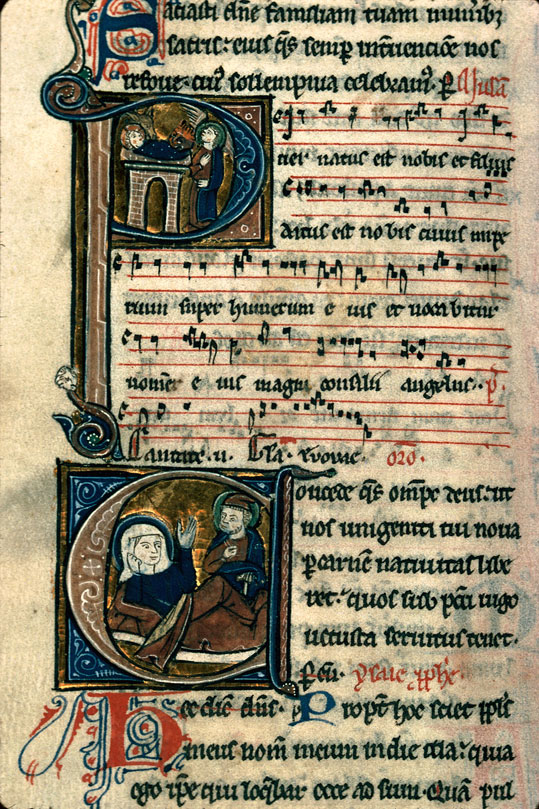 Saciasti dñe familiam tuam munib;
sacris: eius q̃s semp interuencioẽ nos
refoue. cui' sollempnia celebram'. P̃ Ad missã
Puer natus est nobis et filius
datus est no bis cuius impe
rium super humerum e ius et uocabitur
nomen e ius magni consilii angelus. p̃.
Cantate .ii. Gła. euouae. oro.
Concede q̃s omp̃e deus: ut
nos unigeniti tui noua
p carnẽ natiuitas libe
ret. quos sub pcĩ iugo
uetusta seruitus tenet.
P eũ. ysaie pphẽ.
Hec dic̃ dñs. Propt̃ hoc sciet ppl's
meus nom̃ meum in die illa: quia
ego ip̃e qui loq̃bar ecce ad sum. Quã pul